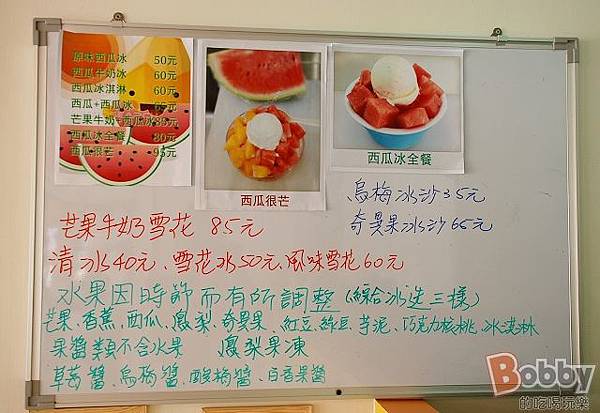 原味西瓜冰 50元
西瓜牛奶冰 60元
西瓜冰淇淋 60元
西瓜+西瓜冰 65元
芒果牛奶+西瓜冰85元
西瓜冰全餐 80元
西瓜很芒 95元
西瓜很芒
西瓜冰全餐
烏梅冰沙35元
奇異果冰沙65元
芒果牛奶雪花 85元
清冰40元、雪花冰50元、風味雪花60元
水果因時節而有所調整(綜合冰選三樣)
芒果、香蕉、西瓜、鳳梨、奇異果、紅豆、綠豆、芋泥、巧克力核桃、冰淇淋
果醬類不含水果 鳳梨果凍
草莓醬、烏梅醬、酸梅醬、百香果醬
Bobby
的吃喝玩樂